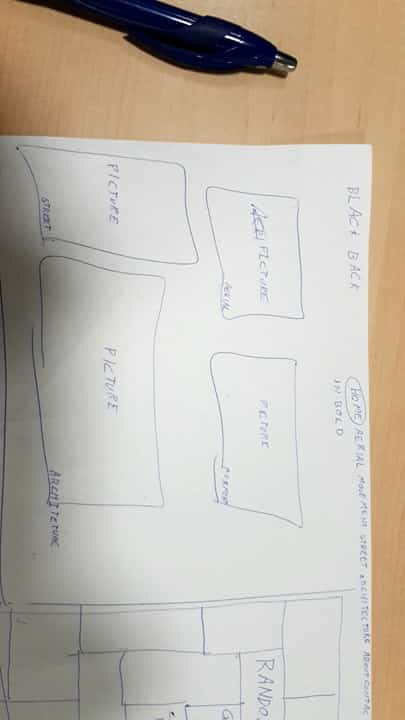 BLACK BACK
HOME AERIAL MOVEMENT STREET ARCHITECTURE ABOUT CONTAC
IN BOLD
PICTURE
AERIAL
PICTURE
PICTURE
STREET
PICTURE
ARCHITETURE
RANDO